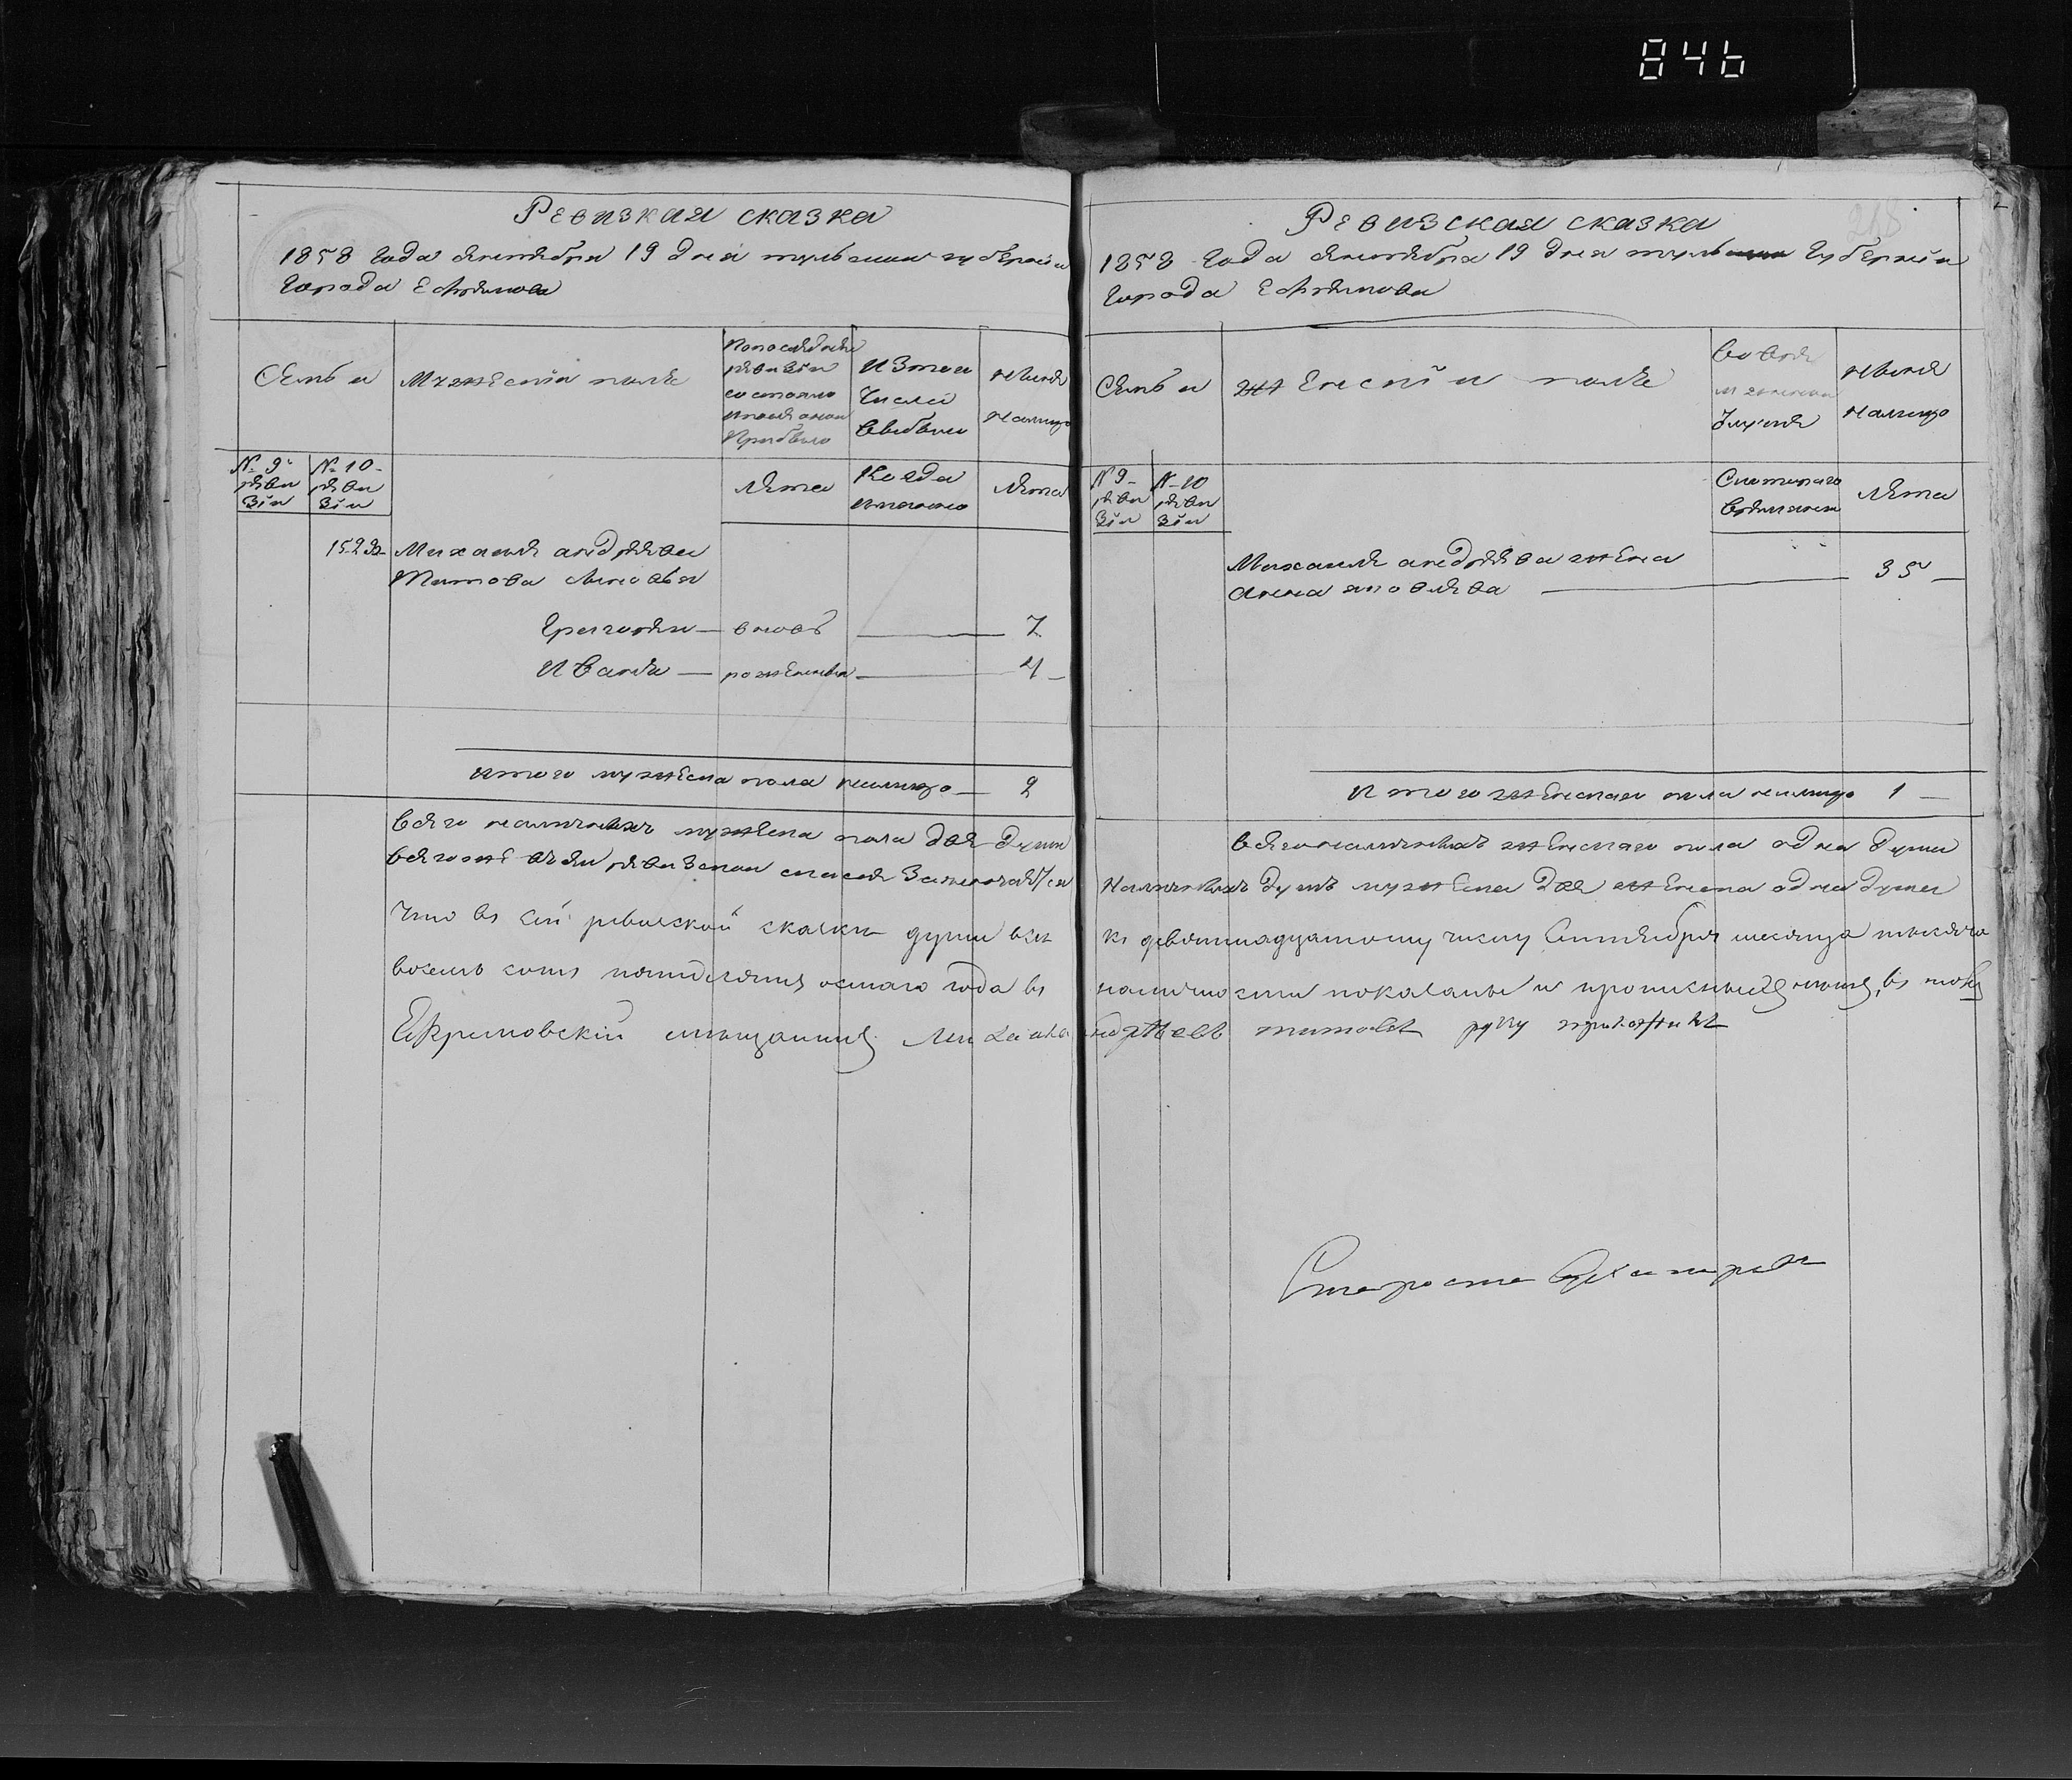 846
Ревизкая сказка
1858 года сентября 19 дня тульскои губернии
Города Ефремова
Семьи
Мужескій полъ
По последней ревизіи состояло и после онои Прибыло
Изтого Числа выбыло
Ныне налицо
№ 9 ревизіи
№ 10 ревизіи
Лета
Когда именно
Лета
152
Михаила андреева
Титова сыновья
Григорей — вновь — 7
Иванъ — рожденныя — 4
итого мужеска пола налицо — 2
Всего наличныхъ мужеска пола две души
Что въ сей ревизской сказки души все
восемь сотъ пятидесятъ осмаго года въ
Ефремовскій мещанинъ
Ревизская сказка
1858 года сентября 19 дня тульскои Губерніи
Города Ефремова
Семьи
женскій полъ
Во временной отлучке
Ныне налицо
№ 9 ревизіи
№ 10 ревизіи
Скотораго времяни
Лета
Михаила андреева жена
Анна яковлева — 35
Итого женскаго пола налицо 1
Всегоналичныхъ женскаго пола одна душа
Наличныхъ душъ мужеска две женска одна душа
къ девятнадцатому числу Сентября месяца тысяча
наличности показаны и прописныхъ нетъ, въ томъ
андреевъ титовъ руку приложилъ
Староста